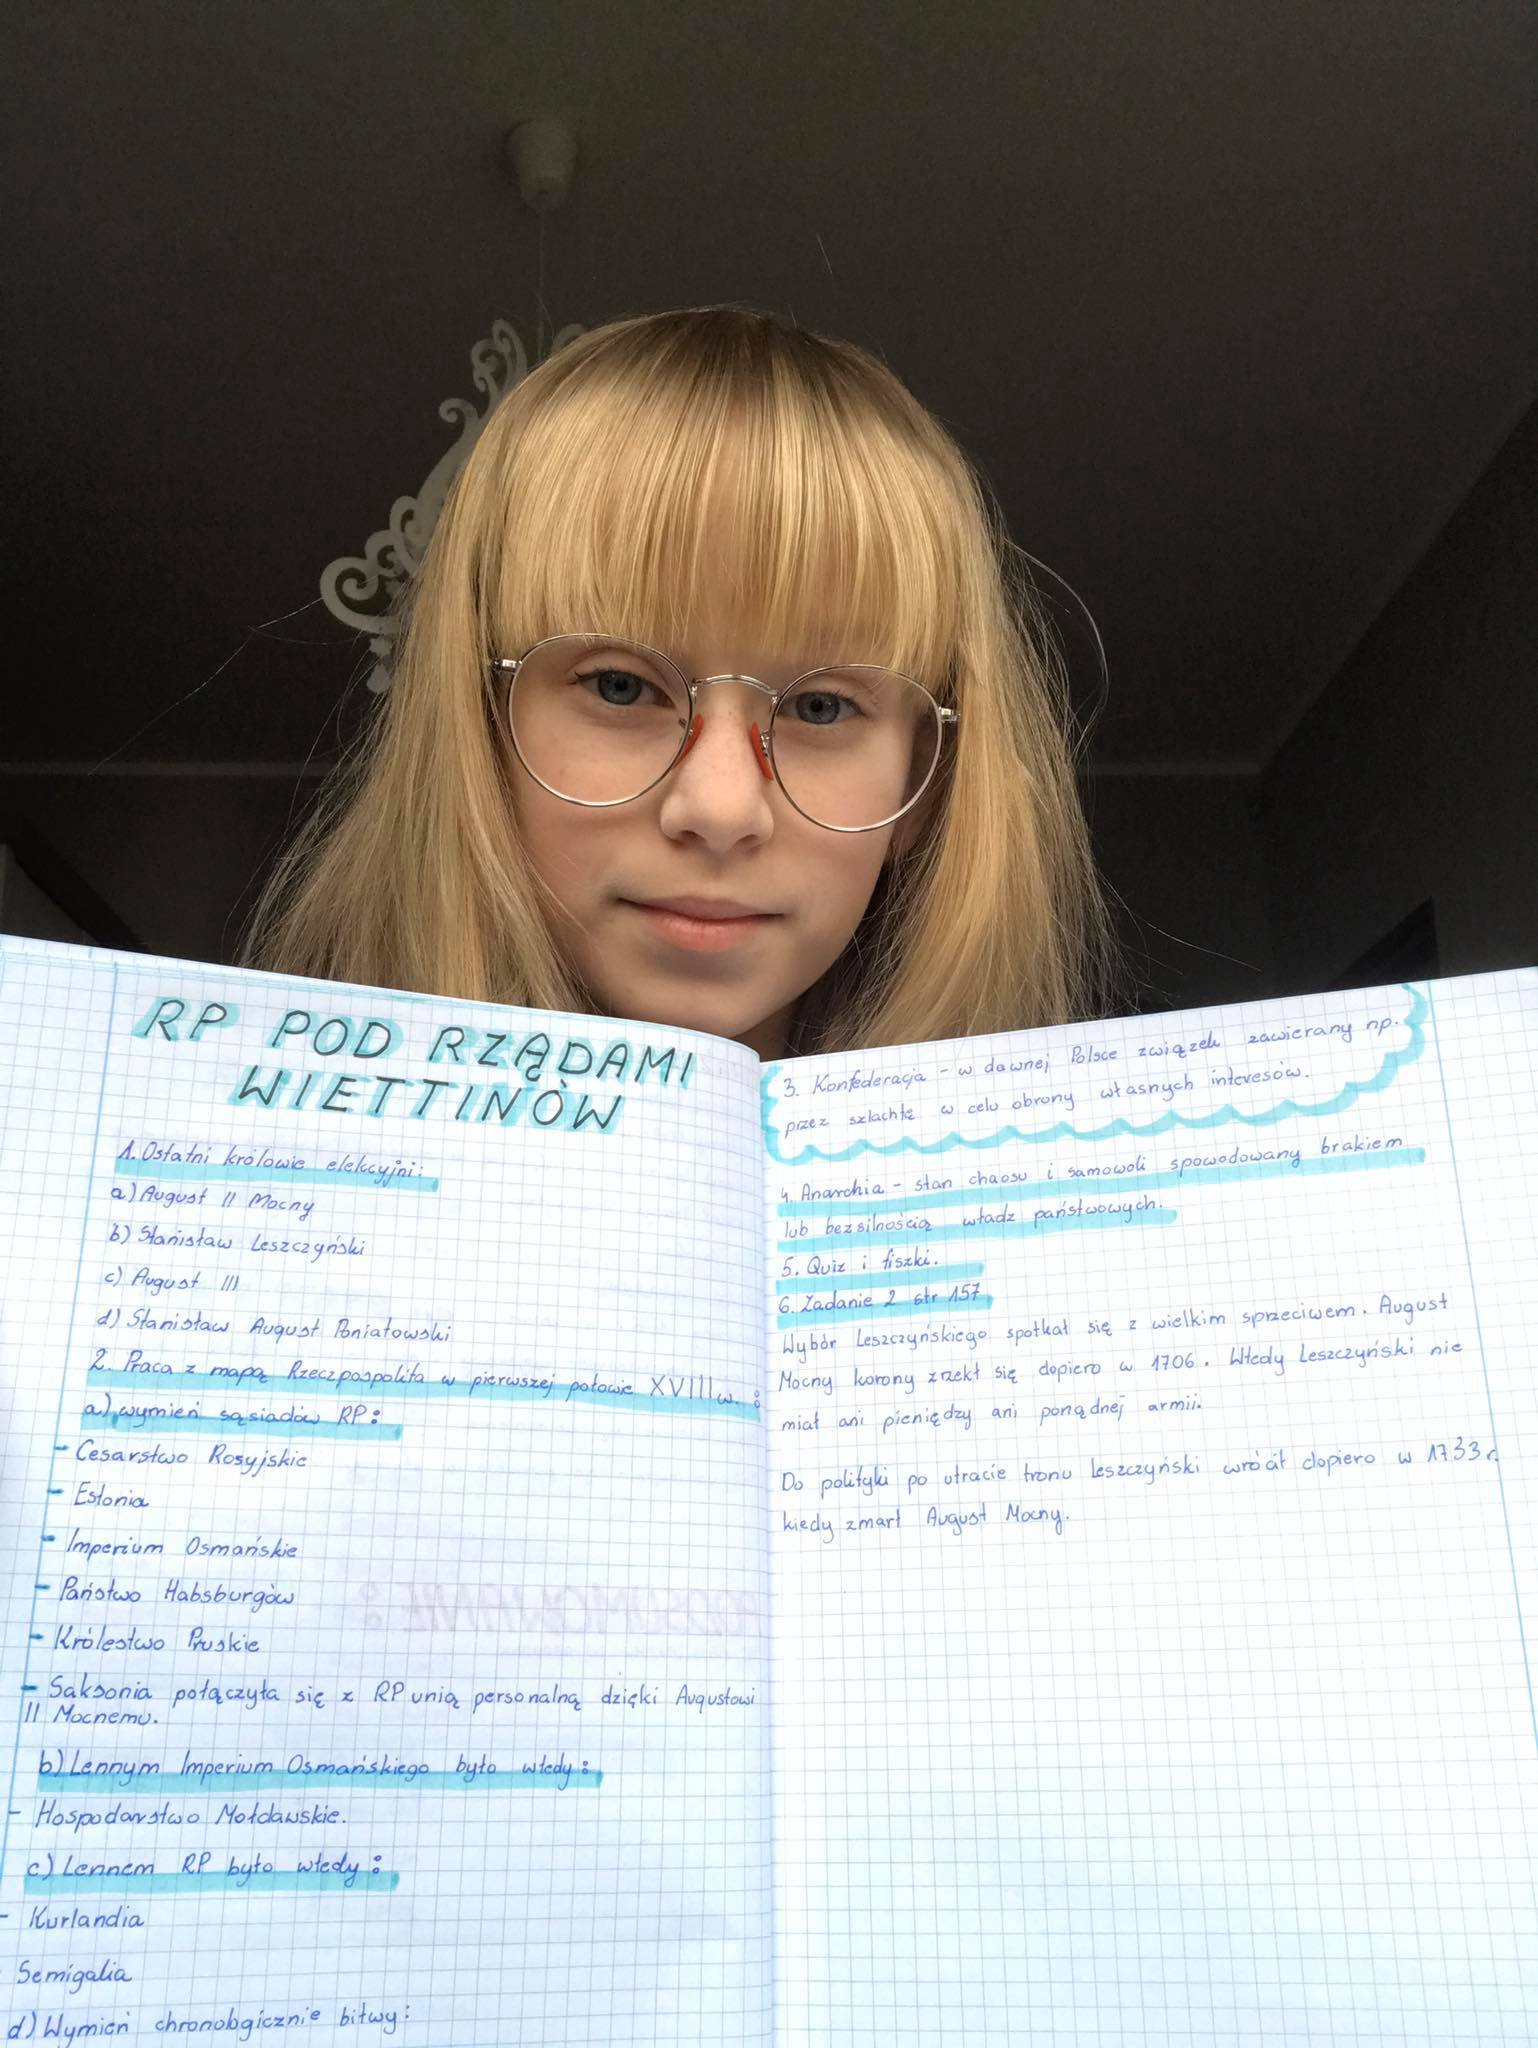 RP POD RZĄDAMI
WIETTINÓW
1. Ostatni królowie elekcyjni:
a) August II Mocny
b) Stanisław Leszczyński
c) August III
d) Stanisław August Poniatowski
2. Praca z mapą Rzeczpospolita w pierwszej połowie XVIII w. :
a) wymień sąsiadów RP:
- Cesarstwo Rosyjskie
- Estonia
- Imperium Osmańskie
- Państwo Habsburgów
- Królestwo Pruskie
- Saksonia połączyła się z RP unią personalną dzięki Augustowi
II Mocnemu.
b) Lennym Imperium Osmańskiego było wtedy:
- Hospodarstwo Mołdawskie.
c) Lennem RP było wtedy:
- Kurlandia
Semigalia
d) Wymień chronologicznie bitwy:
3. Konfederacja - w dawnej Polsce związek zawierany np.
przez szlachtę w celu obrony własnych interesów.
4. Anarchia - stan chaosu i samowoli spowodowany brakiem
lub bezsilnością władz państwowych.
5. Quiz i fiszki.
6. Zadanie 2 str 157
Wybór Leszczyńskiego spotkał się z wielkim sprzeciwem. August
Mocny korony zrzekł się dopiero w 1706. Wtedy Leszczyński nie
miał ani pieniędzy ani porządnej armii.
Do polityki po utracie tronu Leszczyński wrócił dopiero w 1733 r.
kiedy zmarł August Mocny.